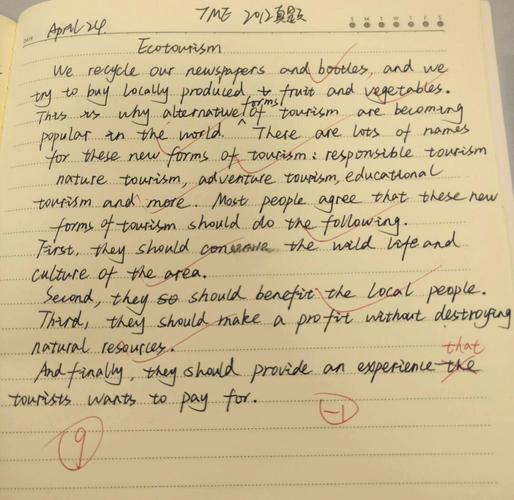 DATE April 24. TME 2012真题 S M T W T F S
Ecotourism
We recycle our newspapers and bottles, and we
try to buy locally produced fruit and vegetables.
forms
This is why alternative ^ of tourism are becoming
popular in the world. There are lots of names
for these new forms of tourism: responsible tourism
nature tourism, adventure tourism, educational
tourism and more. Most people agree that these new
forms of tourism should do the following.
First, they should conserve the wild life and
culture of the area.
Second, they so should benefit the local people.
Third, they should make a profit without destroying
natural resources.
that
And finally, they should provide an experience the
tourists wants to pay for.
9 -1